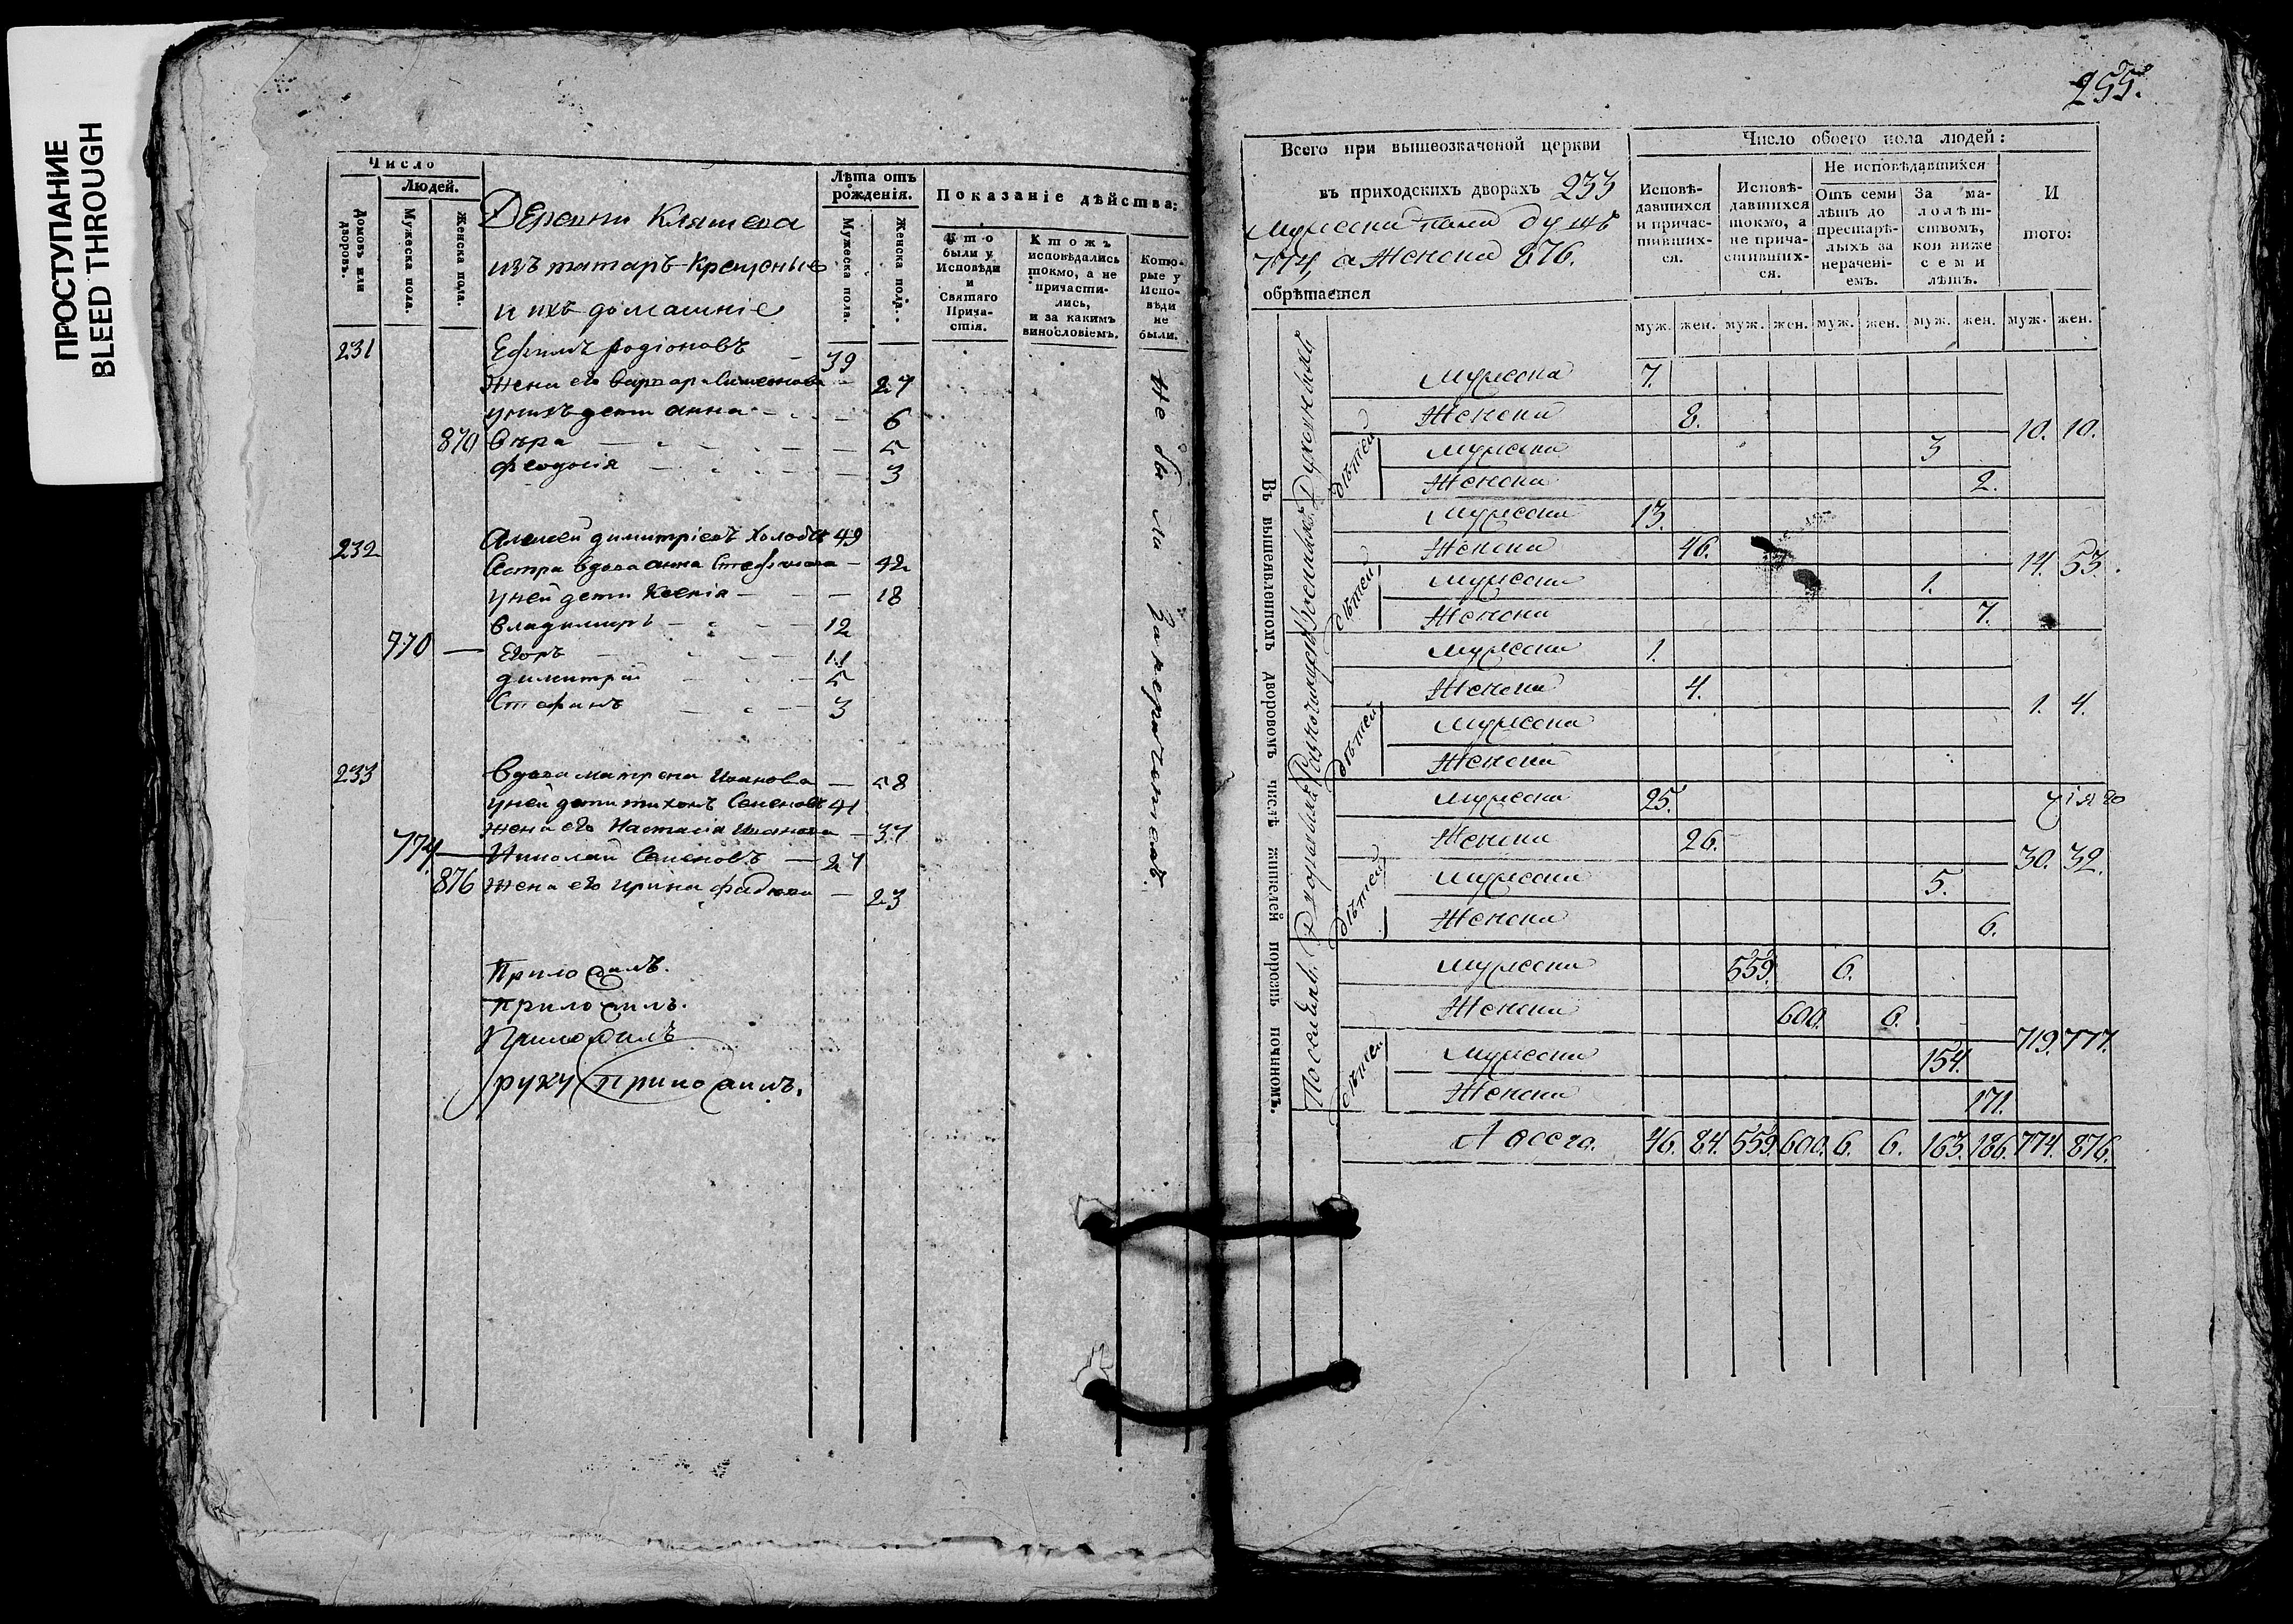 ПРОСТУПАНИЕ
BLEED THROUGH
Число
Людей.
Домовъ или дворовъ.
Мужеска пола.
Женска пола.
Деревни Кляшева
изъ татаръ крещеные
и ихъ домашніе
Лѣта отъ рожденія.
Мужеска пола.
Женска пола.
Показаніе дѣйства:
Кто были у Исповѣди и Святаго Причастія.
Ктожъ исповѣдались токмо, а не причастились, и за какимъ винословіемъ.
Которые у Исповѣди не были.
231 Ефимъ родіоновъ 39
жена его варвар 27
унихъ дети анна 6
870 вера 5
феодосія 3
232 Алексей димитріевъ 49
Сестра вдова анна 42
уней дети Ксенія 18
владимиръ 12
770 Егоръ 11
димитрий 5
Стефанъ 3
233 вдова матрена Иванова 58
уней дети тихонъ Семеновъ 41
жена его Настасія Иванова 37
774 Николай Семеновъ 27
876 жена его ирина 23
не были за нерачениемъ
Приложилъ.
приложилъ.
Приложилъ
руку приложилъ.
255.
Всего при вышеозначеной церкви
въ приходскихъ дворахъ 233
мужеска пола душъ
774, а женска 876.
обрѣтается
Число обоего пола людей:
Исповѣдавшихся и причастившихся.
Исповѣдавшихся токмо, а не причастившихся.
Не исповѣдавшихся
Отъ семи лѣтъ до престарѣлыхъ за нераченіемъ.
За малолѣтствомъ, кои ниже семи лѣтъ.
И того:
муж. жен. муж. жен. муж. жен. муж. жен. муж. жен.
Въ вышеявленномъ дворовомъ числѣ жителей порознь починомъ.
Духовныхъ
Мужеска 7.
Женска 8.
10. 10.
дѣтей
Мужеска 3
Женска 2.
Военныхъ
Мужеска 13.
Женска 46.
14. 53.
дѣтей
Мужеска 1.
Женска 7.
Мужеска 1.
Женска 4.
1. 4.
дѣтей
Мужеска
Женска
Дворовыхъ
Мужеска 25.
Женска 26.
30. 32.
дѣтей
Мужеска 5.
Женска 6.
Поселянъ
Мужеска 559. 6.
Женска 600. 6.
719. 777.
дѣтей
Мужеска 154.
Женска 171.
А всего. 46. 84. 559. 600. 6. 6. 163. 186. 774. 876.